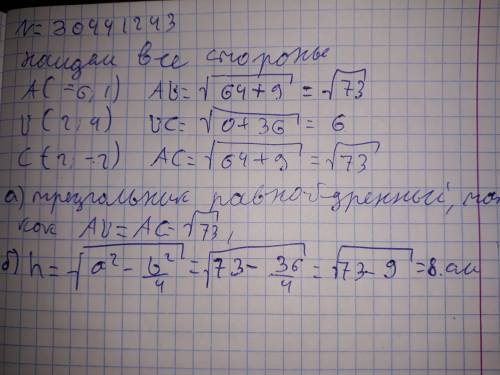 N= 30441243
найдем все стороны
A(-6,1) AB=√64+9 = √73
B(2,4) BC=√0+36 = 6
C(2,-2) AC=√64+9 = √73
а) треугольник равнобедренный, так
как AB=AC=√73,
б) h=√a²-b²/4=√73-36/4=√73-9=8.ем